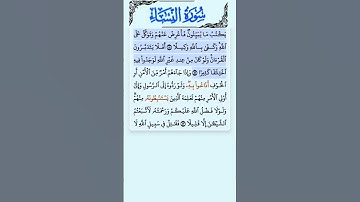 سُورَةُ النِّسَاءِ
يَكْتُبُ مَا يُبَيِّتُونَ فَأَعْرِضْ عَنْهُمْ وَتَوَكَّلْ عَلَى
اللَّهِ وَكَفَىٰ بِاللَّهِ وَكِيلًا ۝ أَفَلَا يَتَدَبَّرُونَ
الْقُرْءَانَ وَلَوْ كَانَ مِنْ عِندِ غَيْرِ اللَّهِ لَوَجَدُوا فِيهِ
اخْتِلَافًا كَثِيرًا ۝ وَإِذَا جَاءَهُمْ أَمْرٌ مِّنَ الْأَمْنِ أَوِ
الْخَوْفِ أَذَاعُوا بِهِ وَلَوْ رَدُّوهُ إِلَى الرَّسُولِ وَإِلَىٰ
أُولِي الْأَمْرِ مِنْهُمْ لَعَلِمَهُ الَّذِينَ يَسْتَنبِطُونَهُ مِنْهُمْ
وَلَوْلَا فَضْلُ اللَّهِ عَلَيْكُمْ وَرَحْمَتُهُ لَاتَّبَعْتُمُ
الشَّيْطَانَ إِلَّا قَلِيلًا ۝ فَقَاتِلْ فِي سَبِيلِ اللَّهِ لَا